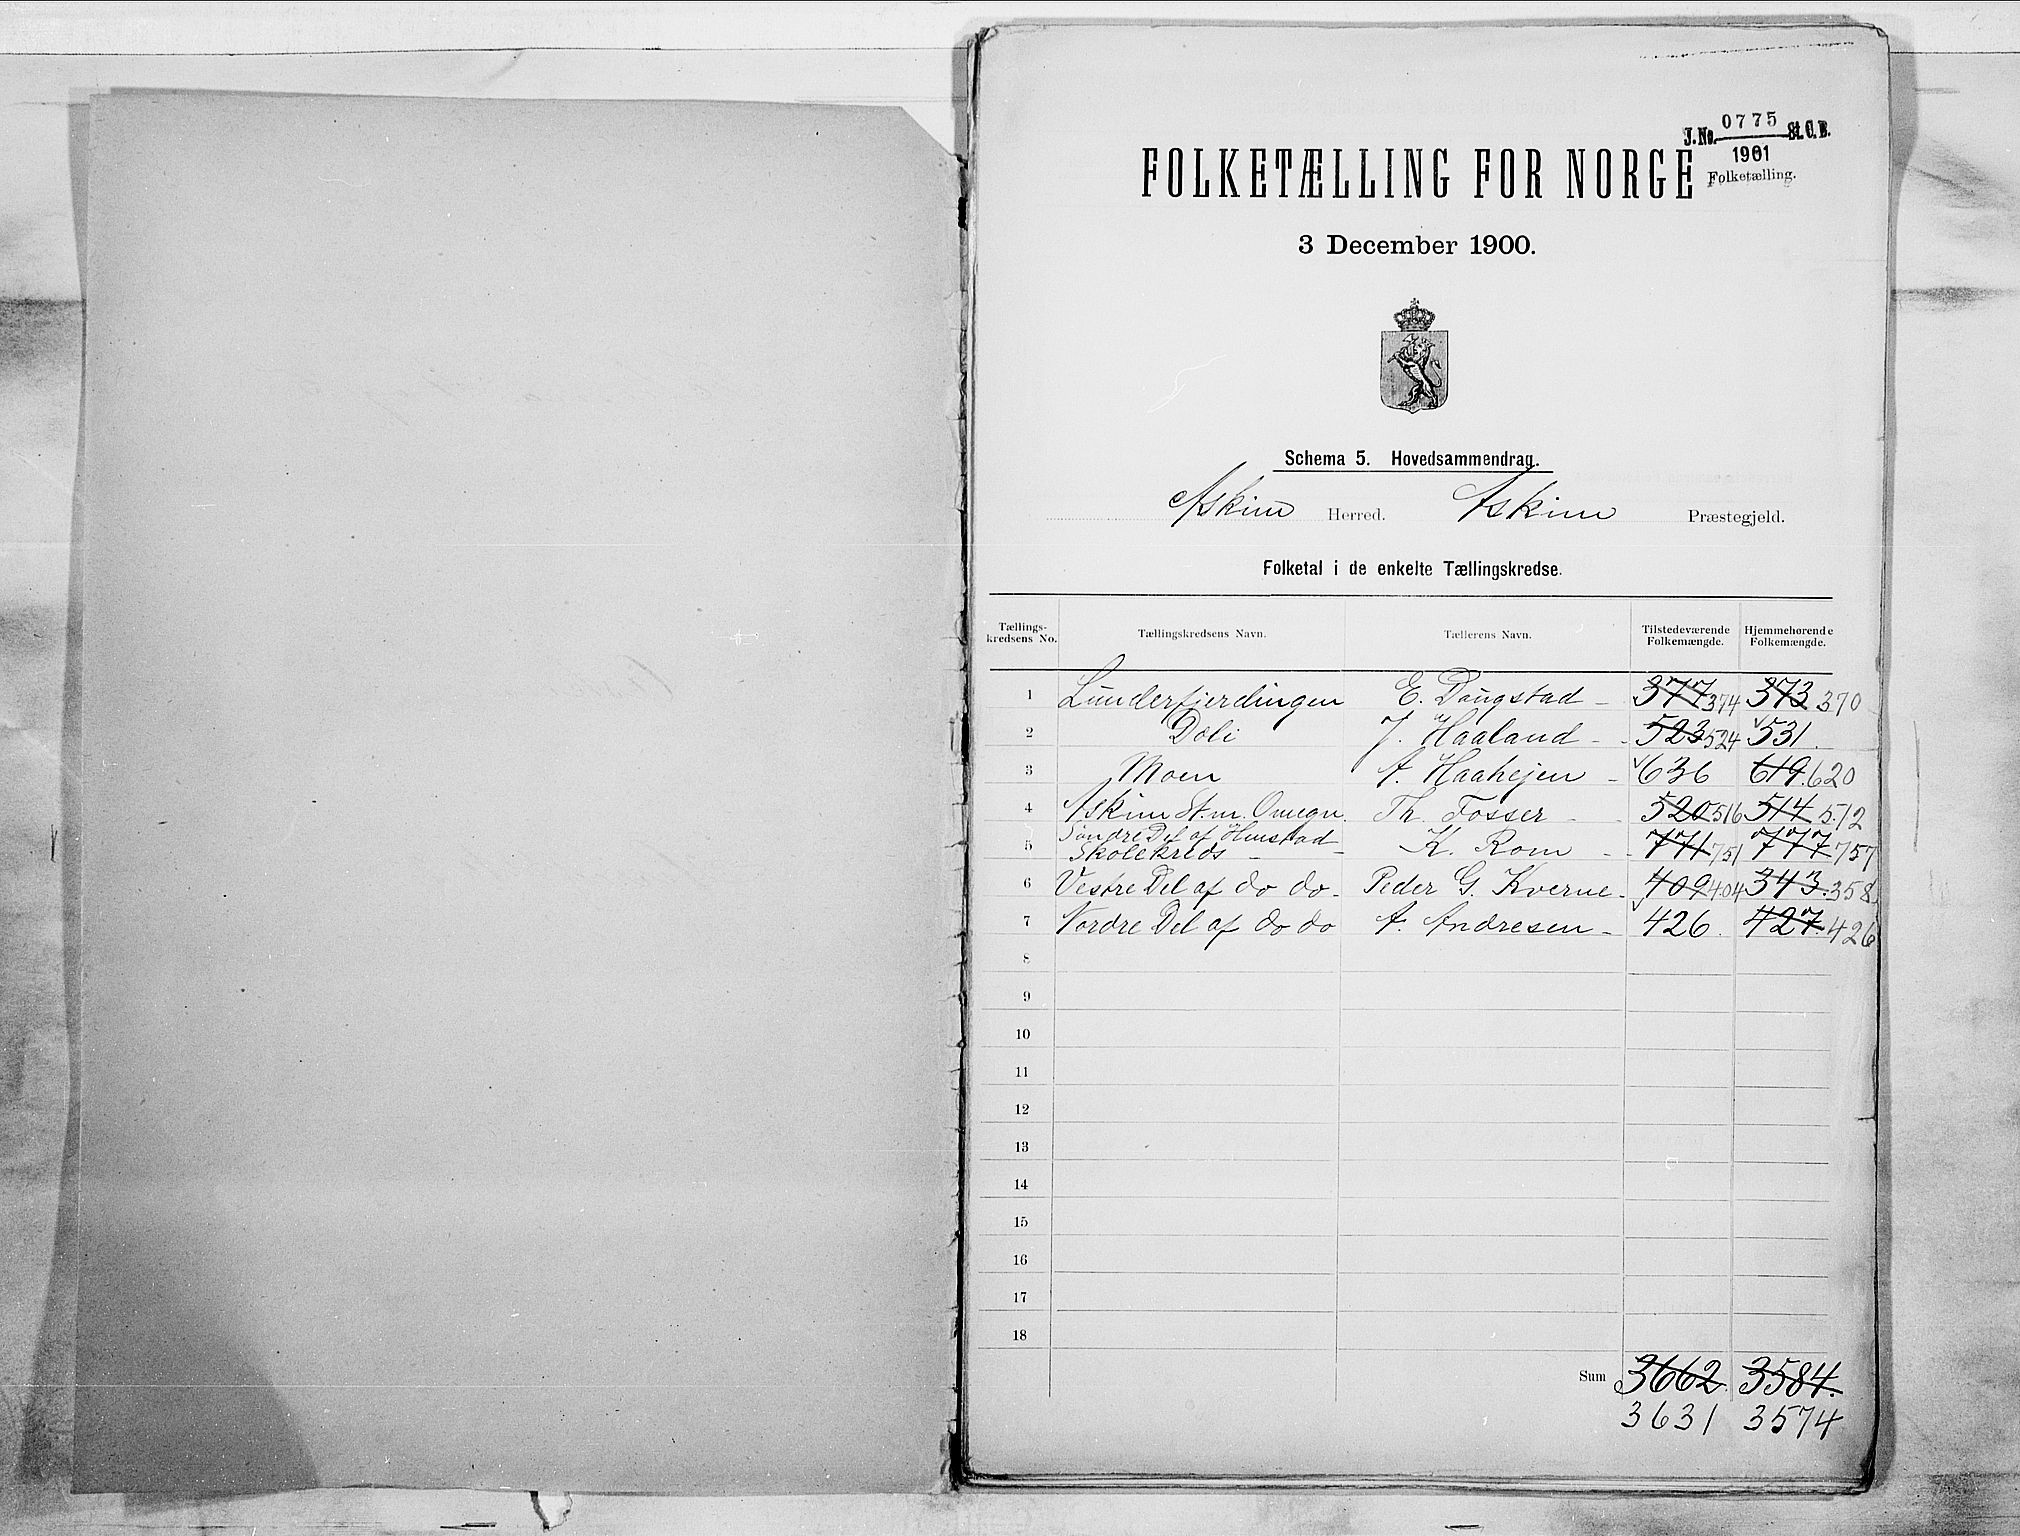 J.No. 0775 St.C.B.
1901
Folketælling.
FOLKETÆLLING FOR NORGE
3 December 1900.
Schema 5. Hovedsammendrag.
Askim Herred. Askim Præstegjeld.
Folketal i de enkelte Tællingskredse.
Tællings-kredsens No. Tællingskredsens Navn. Tællerens Navn. Tilstedeværende Folkemængde. Hjemmehørende Folkemængde.
1 Lunderfjerdingen E. Daugstad 377 374 373 370
2 Doli J. Haaland 523 524 531
3 Moen A. Haahejen 636 619 620
4 Askim St. m. Omegn. Th. Fosser 520 516 514 512
5 Søndre Del af
Skolekreds K. Rom 771 751 777 757
6 Vestre Del af do do Peder G. Kverne 409 404 343 358
7 Nordre Del af do do A. Andresen 426 427 426
8
9
10
11
12
13
14
15
16
17
18
Sum 3662 3584
3631 3574